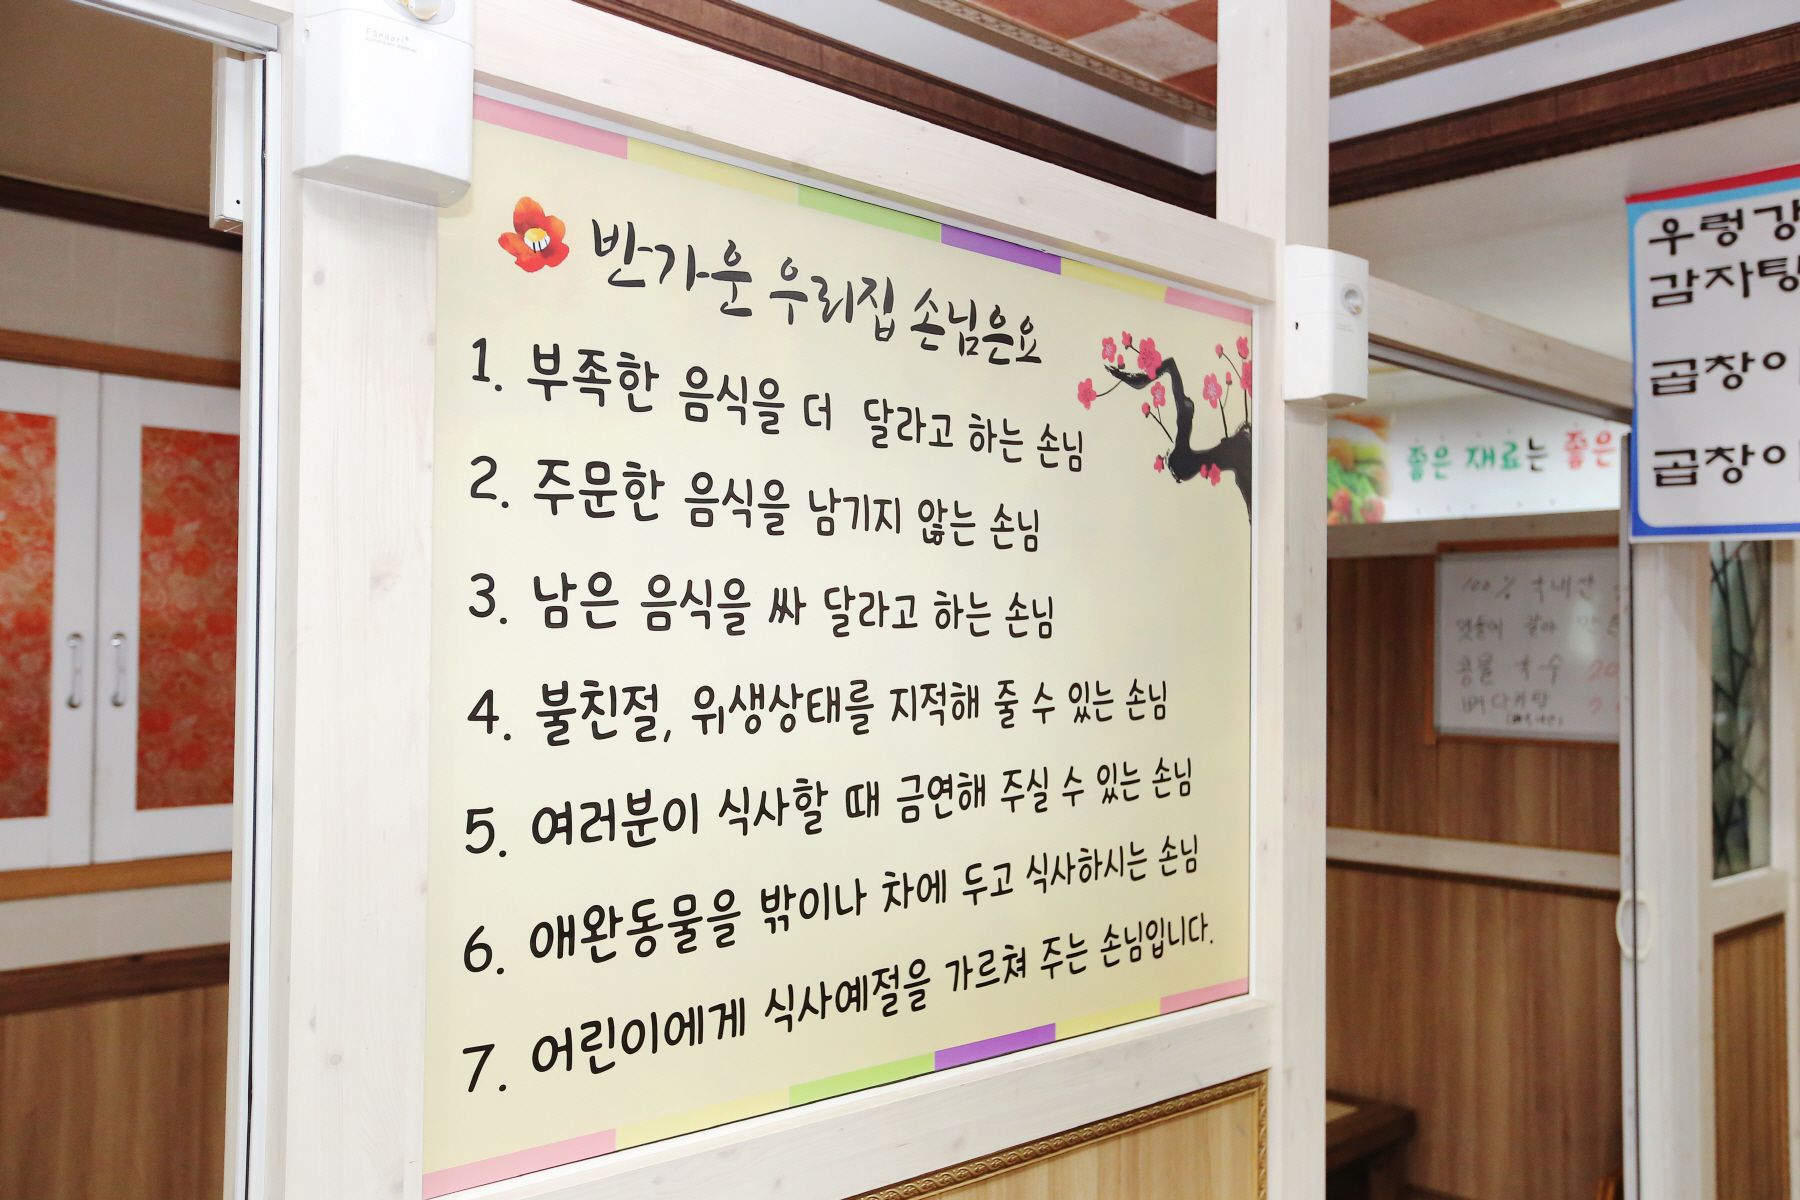 반가운 우리집 손님은요
1. 부족한 음식을 더 달라고 하는 손님
2. 주문한 음식을 남기지 않는 손님
3. 남은 음식을 싸 달라고 하는 손님
4. 불친절, 위생상태를 지적해 줄 수 있는 손님
5. 여러분이 식사할 때 금연해 주실 수 있는 손님
6. 애완동물을 밖이나 차에 두고 식사하시는 손님
7. 어린이에게 식사예절을 가르쳐 주는 손님입니다.
우렁강
감자탕
곱창이
곱창이
좋은 재료는 좋은
100% 국내산
콩물 국수 20
뼈다귀탕